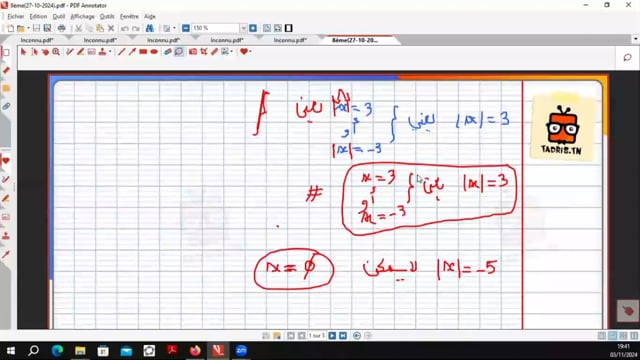 8ème(27-10-2024).pdf - PDF Annotator
Fichier Edition Affichage Outils Aide
150 %
Inconnu.pdf* Inconnu.pdf* Inconnu.pdf* Inconnu.pdf* Inconnu.pdf* 8ème(27-10-20...
|x| = 3 يعني x = 3
أو
|x| = -3
|x| = 3 يعني x = 3
أو
x = -3
#
|x| = -5 لا يمكن x = ∅
TADRIS.TN
1 sur 5
19:41
03/11/2024